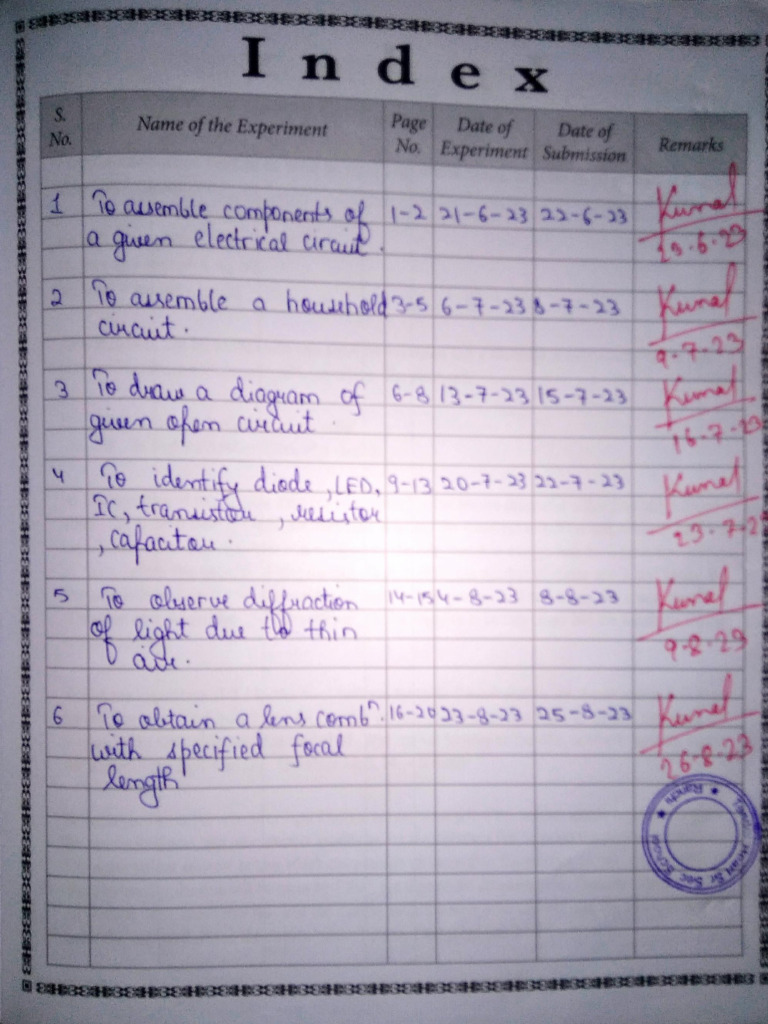 Index
S. No. Name of the Experiment Page No. Date of Experiment Date of Submission Remarks
1 To assemble components of 1-2 21-6-23 22-6-23 Kumal
a given electrical circuit. 23-6-23
2 To assemble a household 3-5 6-7-23 8-7-23 Kumal
circuit. 9-7-23
3 To draw a diagram of 6-8 13-7-23 15-7-23 Kumal
given open circuit. 16-7-23
4 To identify diode, LED, 9-13 20-7-23 22-7-23 Kumal
IC, transistor, resistor 23-7-2
, capacitor.
5 To observe diffraction 14-15 4-8-23 8-8-23 Kumal
of light due to thin 9-8-23
air.
6 To obtain a lens combⁿ. 16-20 23-8-23 25-8-23 Kumal
with specified focal 26-8-23
length
Sr Sec School
Ranchi